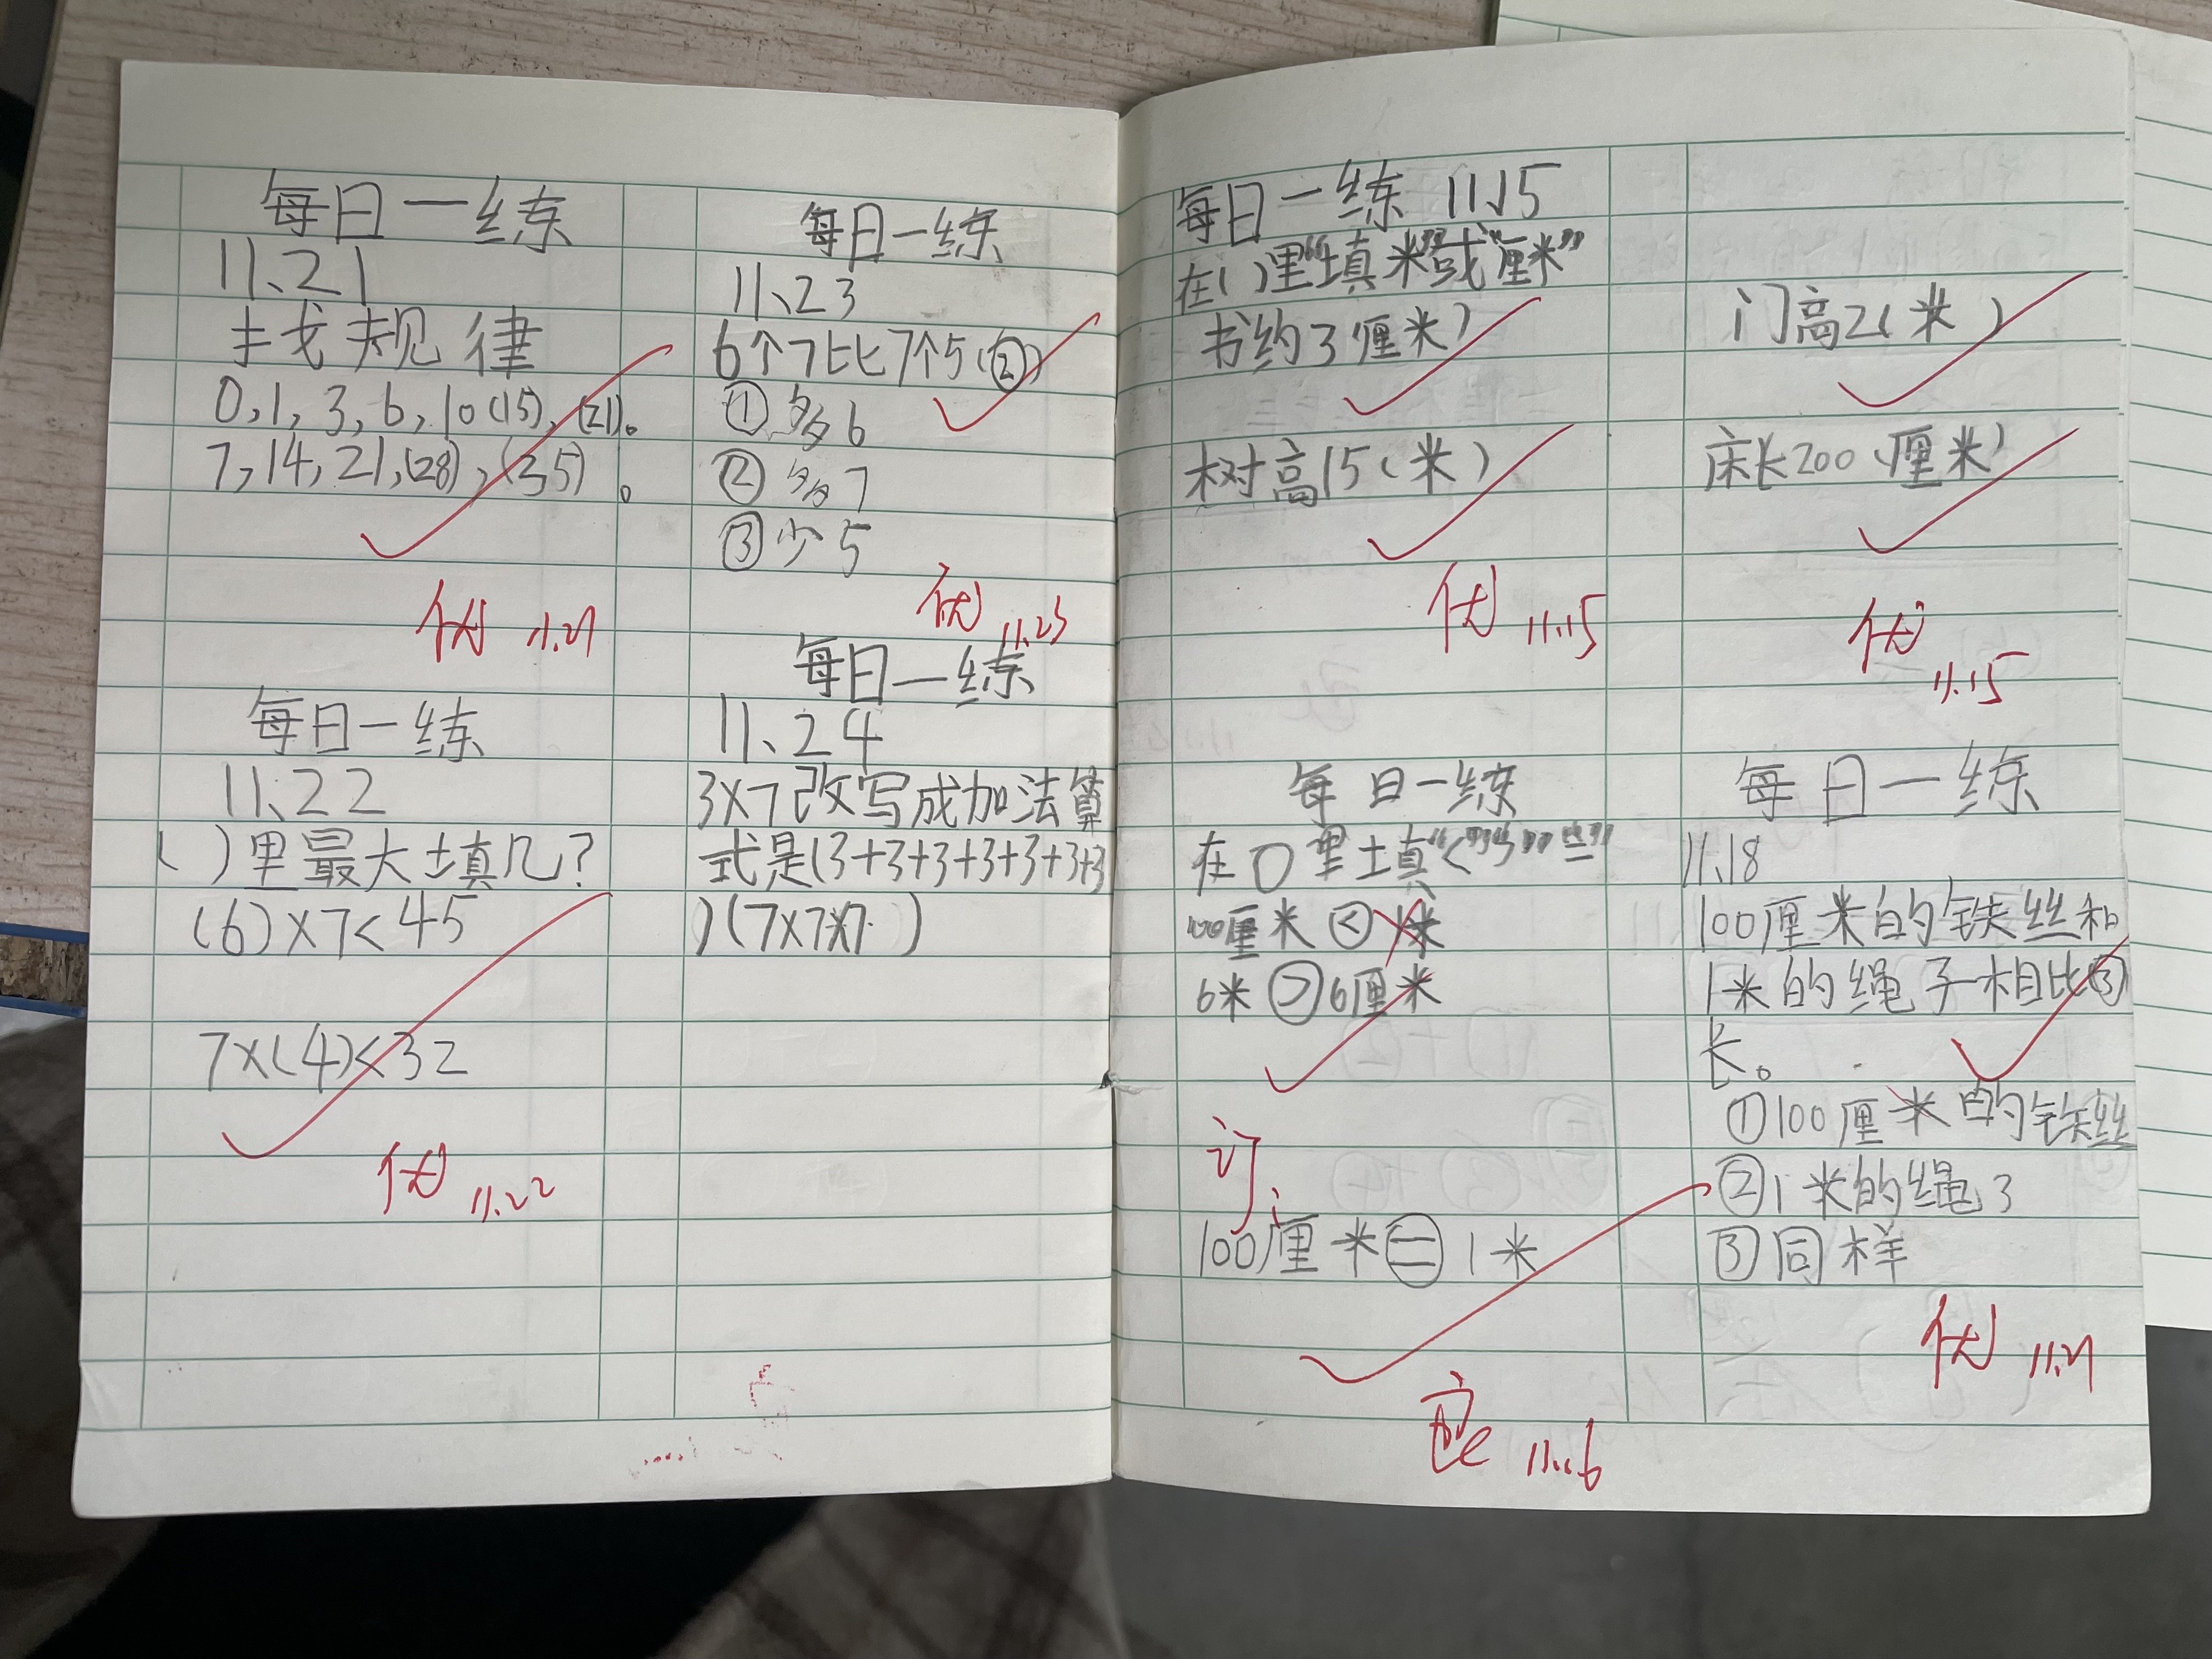 每日一练
11、21
找规律
0,1,3,6,10(15),(21)。
7,14,21,(28),(35)。
优 11.21
每日一练
11、22
( )里最大填几?
(6)×7<45
7×(4)<32
优 11.22
每日一练
11、23
6个7比7个5(②)
①多6
②多7
③少5
优 11.23
每日一练
11、24
3×7改写成加法算
式是(3+3+3+3+3+3+3
)(7×7×7)
每日一练 11.15
在( )里填“米”或“厘米”
书约3(厘米)
树高15(米)
优 11.15
门高2(米)
床长200(厘米)
优 11.15
每日一练
在○里填“<”“>”“=”
100厘米<1米
6米>6厘米
订:
100厘米=1米
良 11.16
每日一练
11.18
100厘米的铁丝和
1米的绳子相比③
长。
①100厘米的铁丝
②1米的绳子
③同样
优 11.21